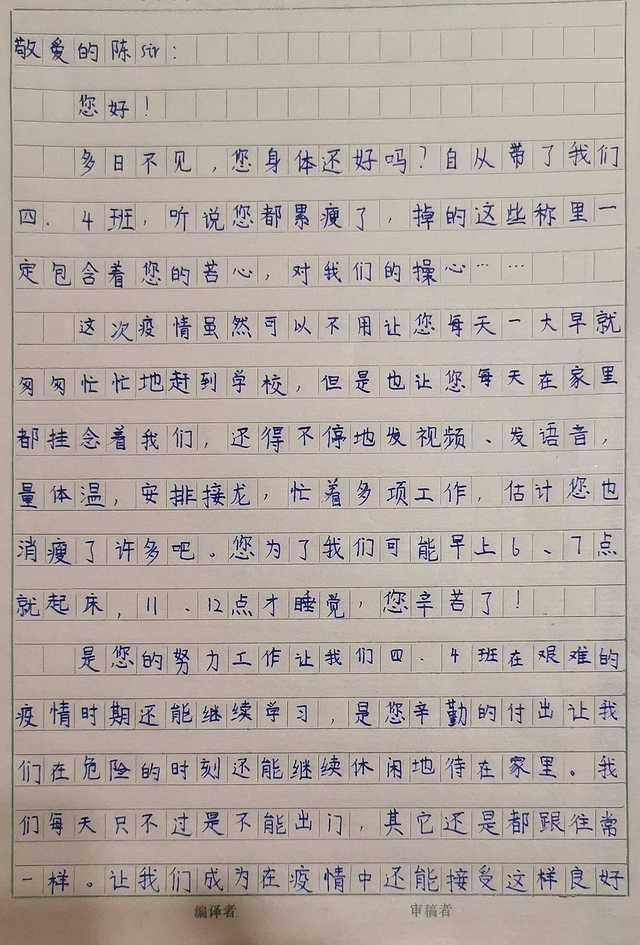 敬爱的陈sir：
您好！
多日不见，您身体还好吗？自从带了我们
四．4班，听说您都累瘦了，掉的这些称里一
定包含着您的苦心，对我们的操心……
这次疫情虽然可以不用让您每天一大早就
匆匆忙忙地赶到学校，但是也让您每天在家里
都挂念着我们，还得不停地发视频、发语音，
量体温，安排接龙，忙着多项工作，估计您也
消瘦了许多吧。您为了我们可能早上6、7点
就起床，11、12点才睡觉，您辛苦了！
是您的努力工作让我们四．4班在艰难的
疫情时期还能继续学习，是您辛勤的付出让我
们在危险的时刻还能继续休闲地待在家里。我
们每天只不过是不能出门，其它还是都跟往常
一样。让我们成为在疫情中还能接受这样良好
编译者 审稿者